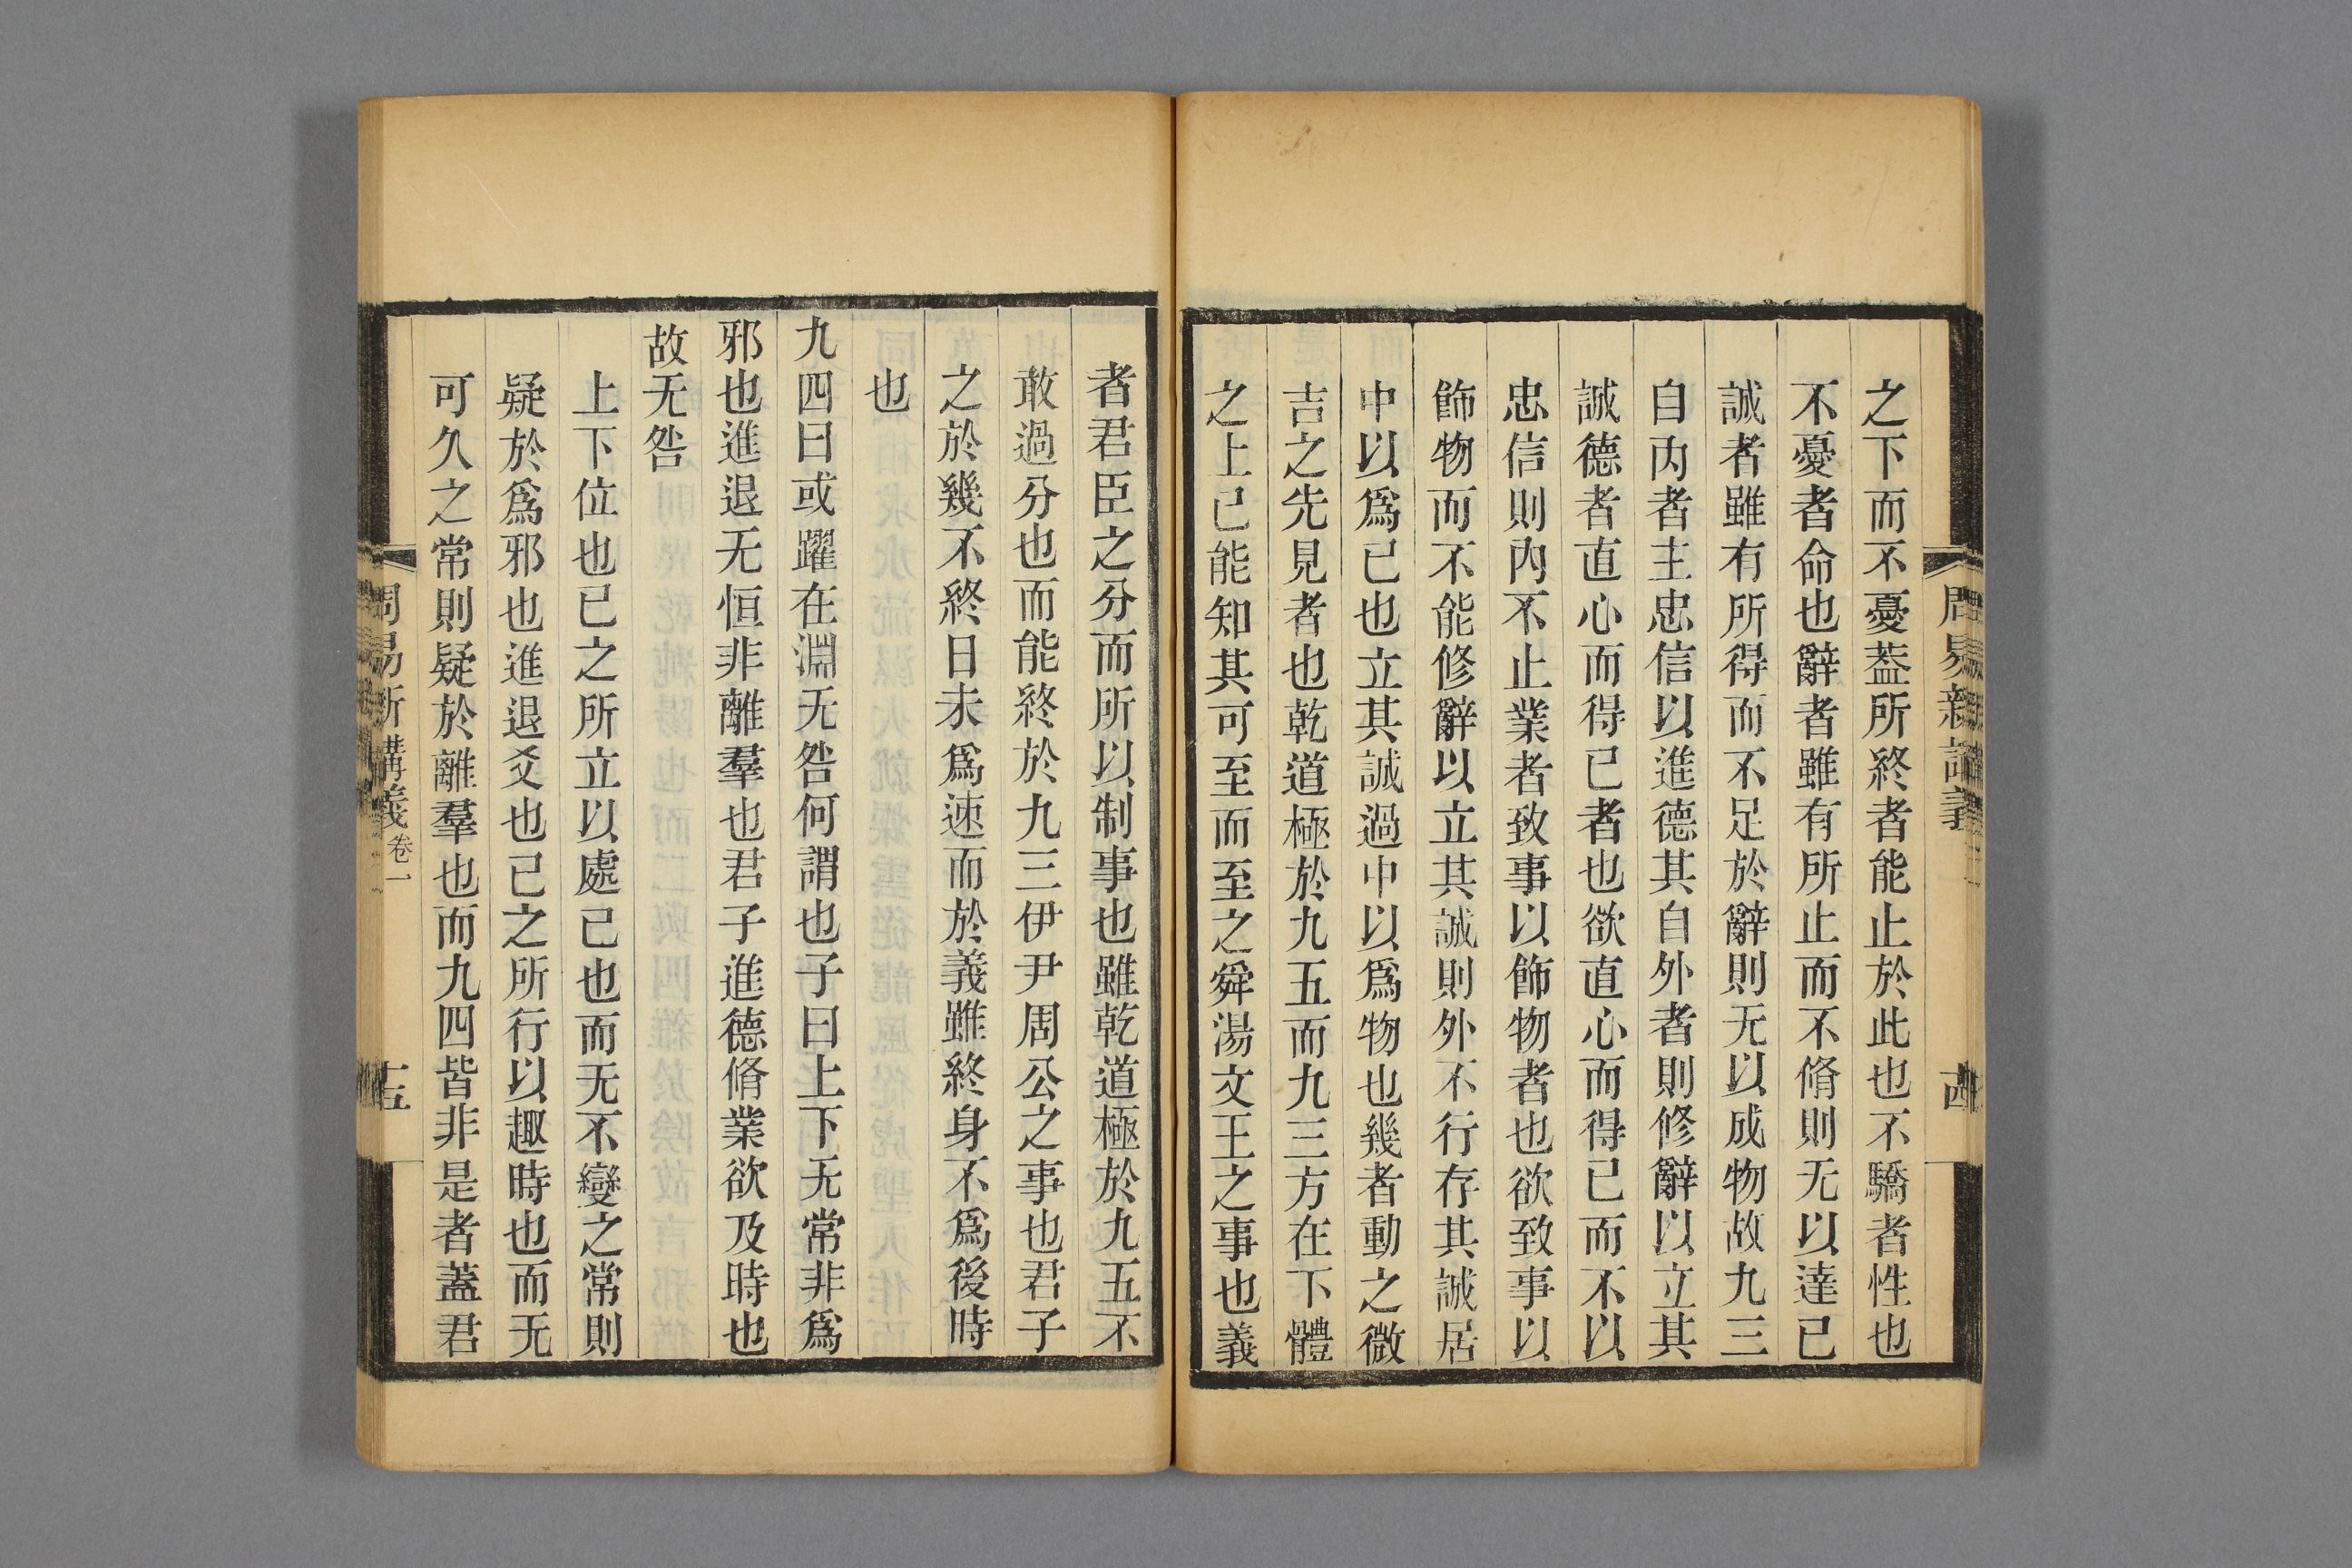 之下而不憂葢所終者能止於此也不驕者性也
不憂者命也辭者雖有所止而不脩則无以達已
誠者雖有所得而不足於辭則无以成物故九三
自內者主忠信以進德其自外者則修辭以立其
誠德者直心而得已者也欲直心而得已而不以
忠信則內不止業者致事以飾物者也欲致事以
飾物而不能修辭以立其誠則外不行存其誠居
中以爲已也立其誠過中以爲物也幾者動之微
吉之先見者也乾道極於九五而九三方在下體
之上已能知其可至而至之舜湯文王之事也義
者君臣之分而所以制事也雖乾道極於九五不
敢過分也而能終於九三伊尹周公之事也君子
之於幾不終日未爲速而於義雖終身不爲後時
也
九四曰或躍在淵无咎何謂也子曰上下无常非爲
邪也進退无恒非離羣也君子進德脩業欲及時也
故无咎
上下位也已之所立以處已也而无不變之常則
疑於爲邪也進退爻也已之所行以趣時也而无
可久之常則疑於離羣也而九四皆非是者蓋君
周易新講義卷一
十五